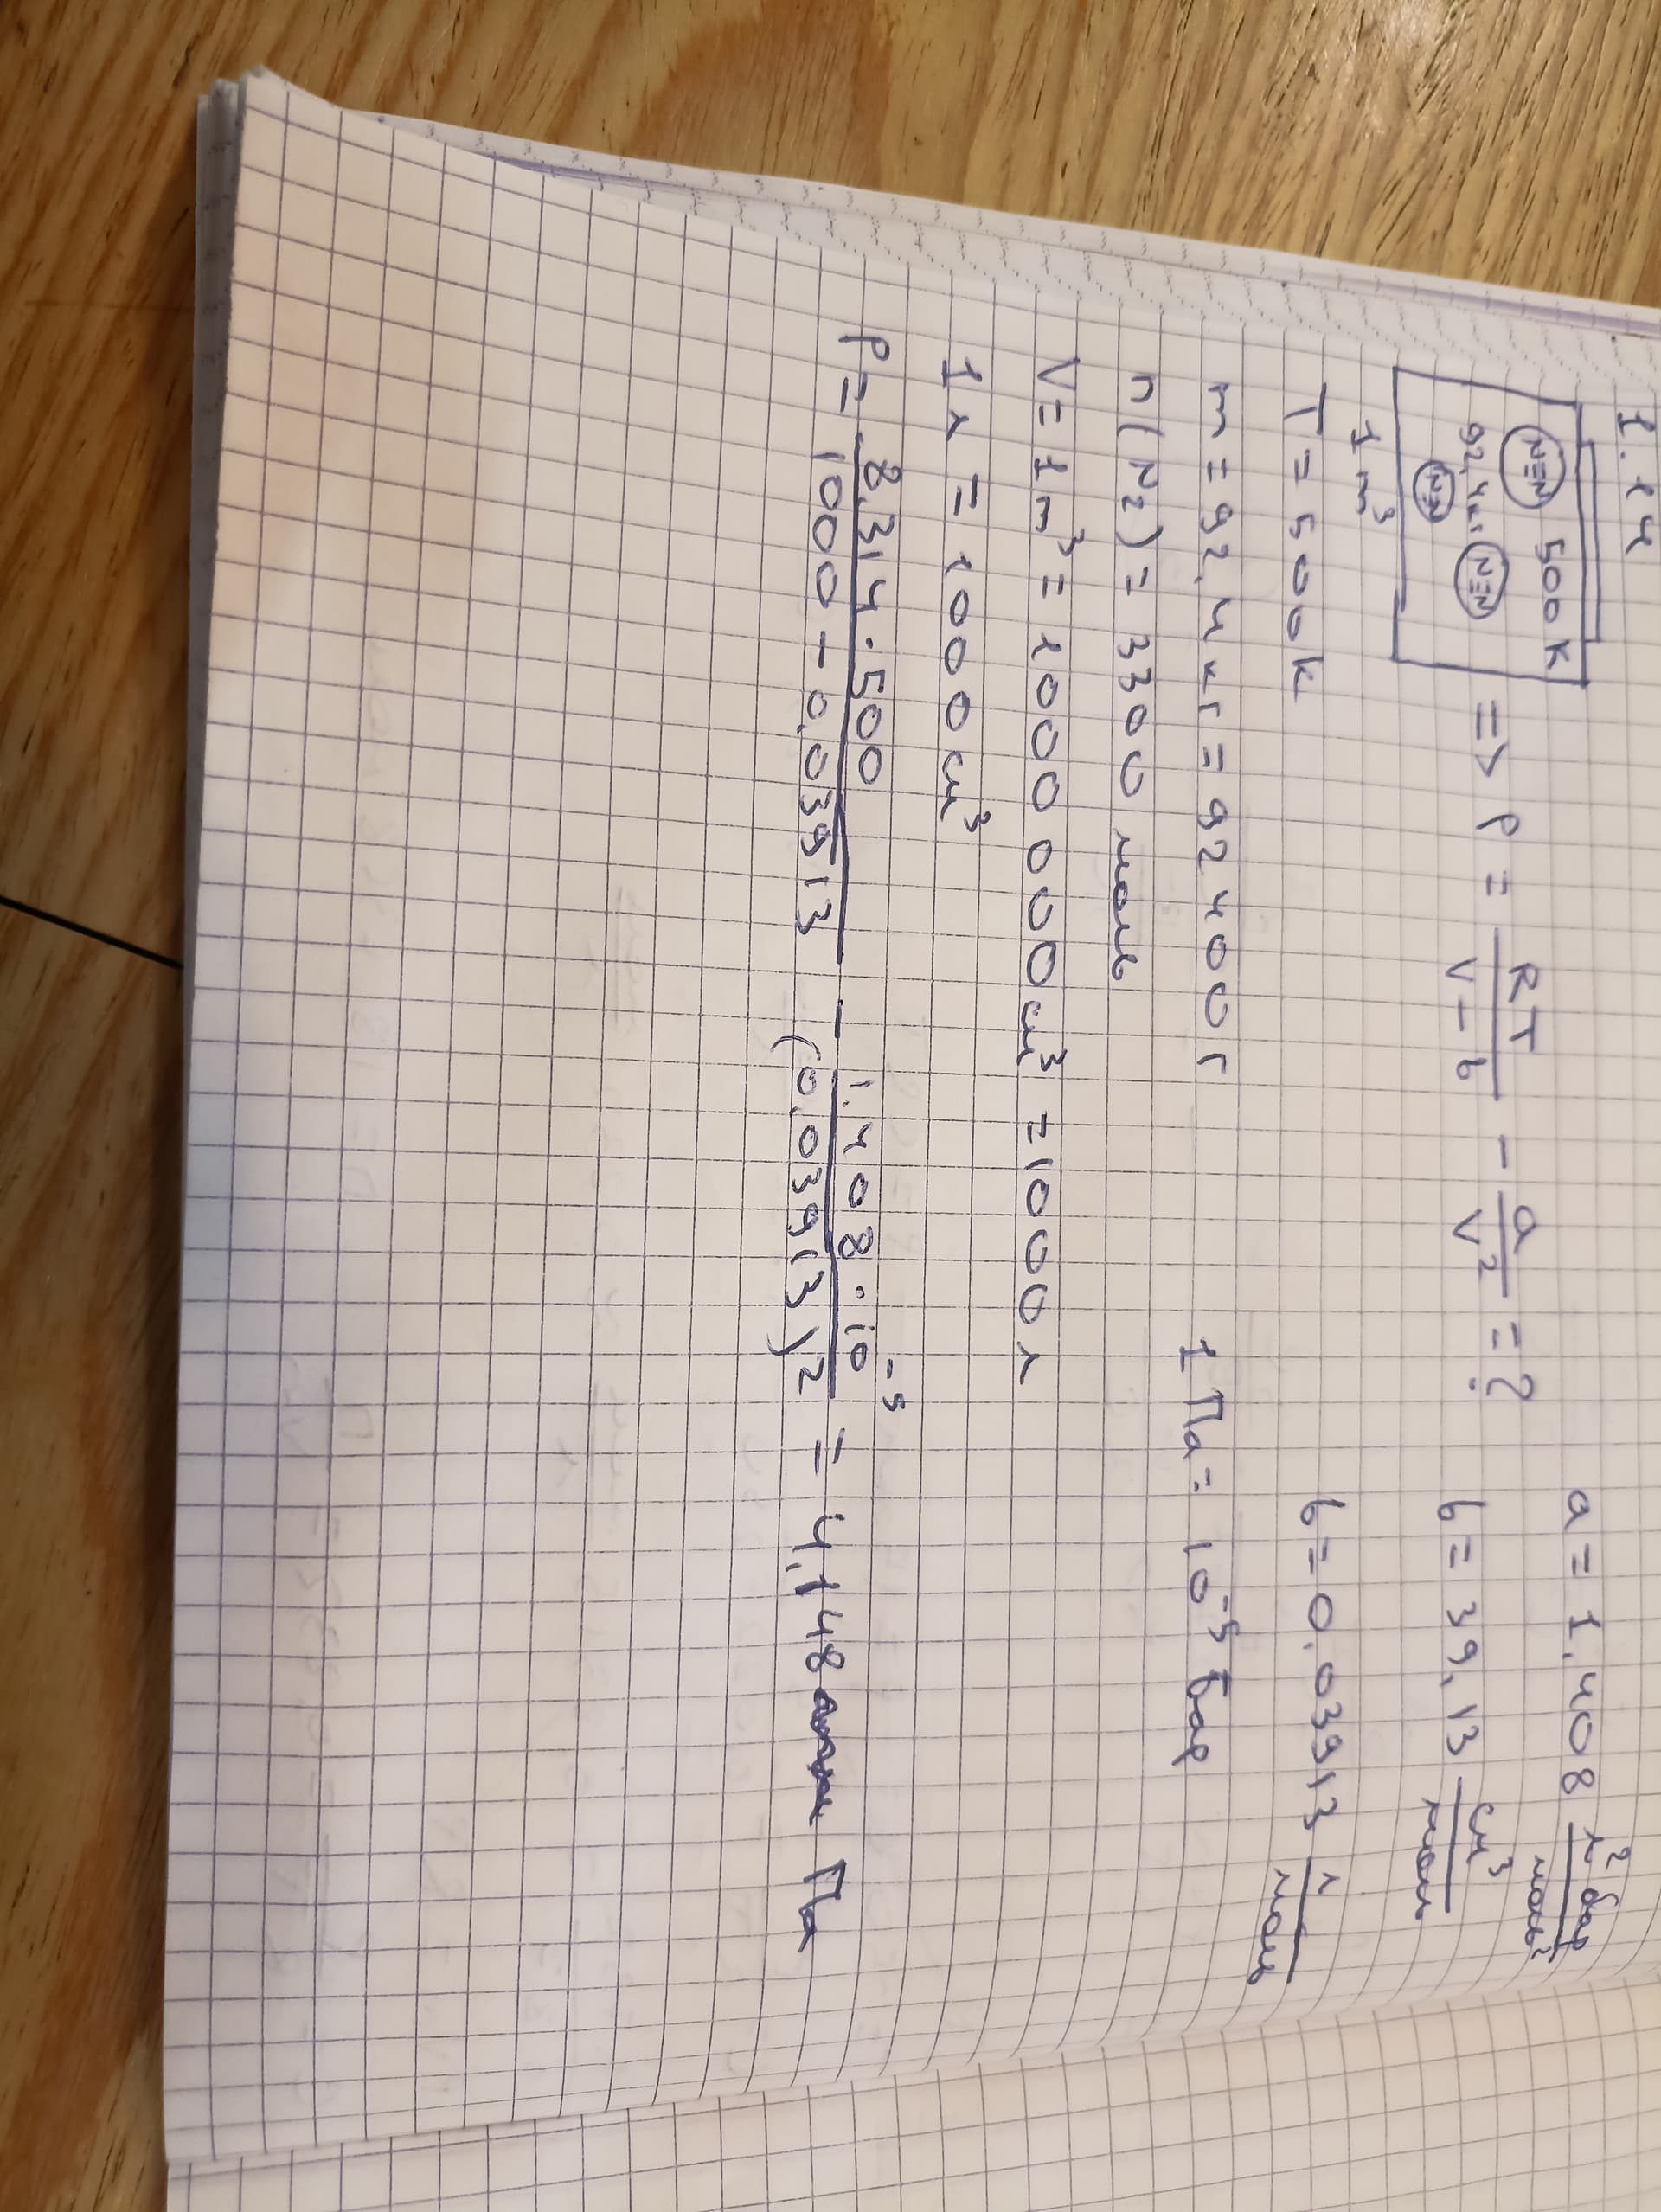 1.14
N≡N 500 K
92,4 кг N≡N
N≡N
1 m³
=> P = RT / V - b - a / V² = ?
a = 1,408 л² бар / моль²
b = 39,13 см³ / моль
b = 0,03913 л / моль
T = 500 K
m = 92,4 кг = 92400 г
1 Па = 10⁻⁵ бар
n(N₂) = 3300 моль
V = 1 m³ = 1000 000 см³ = 1000 л
1 л = 1000 см³
P = 8,314 · 500 / 1000 - 0,03913 - 1,408 · 10⁻⁵ / (0,03913)² = 4,148 Па